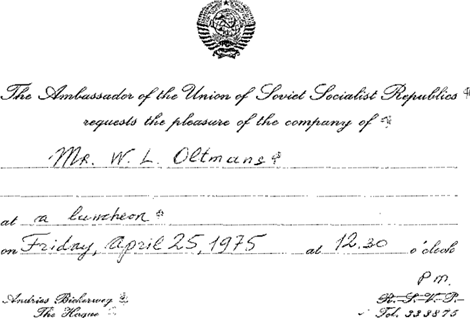 The Ambassador of the Union of Soviet Socialist Republics
requests the pleasure of the company of
Mr. W. L. Oltmans
at a luncheon
on Friday, April 25, 1975 at 12.30 o'clock
P.M.
Andries Bickerweg R.S.V.P.
The Hague Tel. 333875